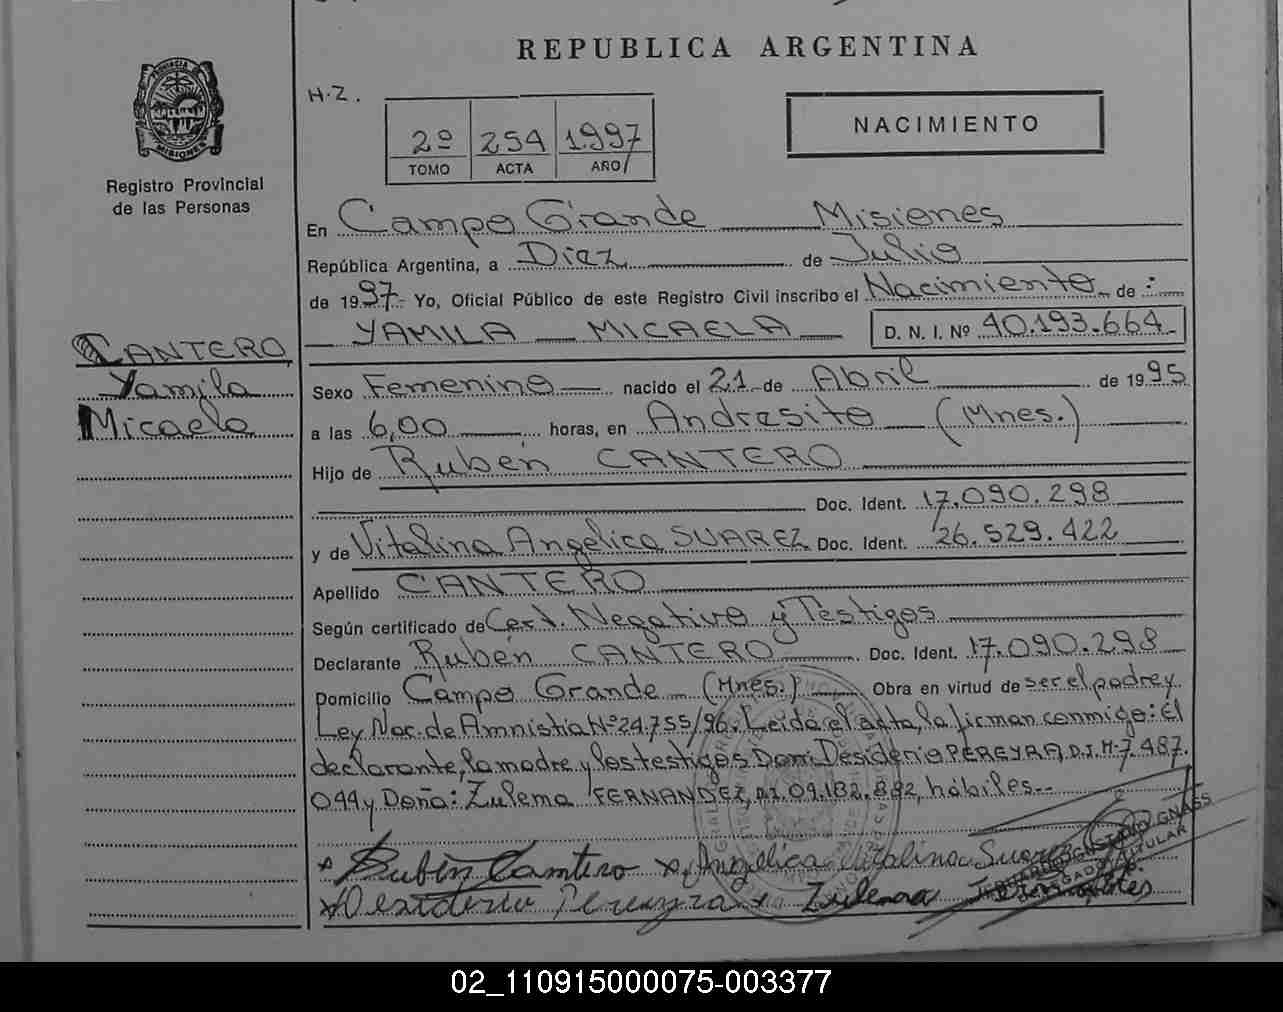 REPUBLICA ARGENTINA
PROVINCIA DE
MISIONES
Registro Provincial
de las Personas
H.Z.
2º 254 1.997
TOMO ACTA AÑO
NACIMIENTO
En Campo Grande Misiones
República Argentina, a Diez de Julio
de 1997.- Yo, Oficial Público de este Registro Civil inscribo el Nacimiento de :
YAMILA MICAELA D. N. I. Nº 40.193.664
CANTERO
Yamila
Micaela
Sexo Femenino nacido el 21 de Abril de 1995
a las 6,00 horas, en Andresito (Mnes.)
Hijo de Rubén CANTERO
Doc. Ident. 17.090.298
y de Vitalina Angélica SUAREZ Doc. Ident. 26.529.422
Apellido CANTERO
Según certificado de Cert. Negativo y Testigos
Declarante Rubén CANTERO Doc. Ident. 17.090.298
Domicilio Campo Grande (Mnes.) Obra en virtud de ser el padre y
Ley Nac. de Amnistia Nº 24.755/96. Leida el acta, la firman conmigo: El
declarante, la madre y los testigos Don: Desiderio PEREYRA, D.I. M-7.487.
044 y Doña: Zulema FERNANDEZ, D.I. 09.182.882, hábiles.--
Rubén Cantero x Angélica Vitalina Suarez
x Desiderio Pereyra x Zulema
GNASS
TITULAR
02_110915000075-003377